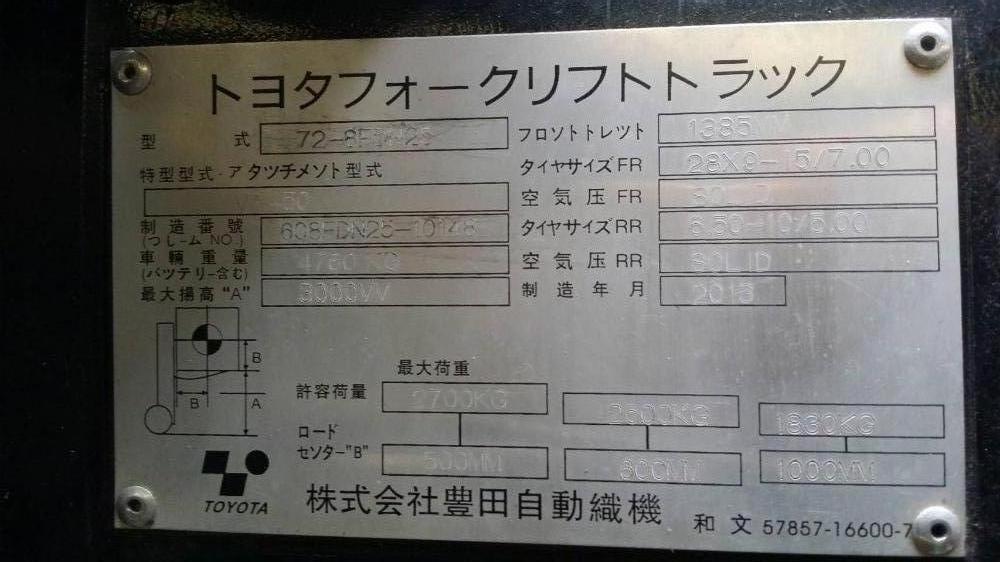 トヨタフォークリフトトラック
型 式
フロソトトレツト 1385MM
特型型式・アタツチメソト型式
タイヤサイズFR 28X9-15/7.00
空気圧FR
制造番號 608FDN25-10148
(つしーム NO.)
タイヤサイズRR 6.50-10/5.00
車輛重量
(バツテリ-含む)
空気圧RR SOLID
最大揚高"A"
制造年月
B
B A
最大荷重
許容荷量 2700KG 1830KG
ロード
セソター"B" 500MM 600MM 1000MM
TOYOTA
株式会社豊田自動織機
和文 57857-16600-7